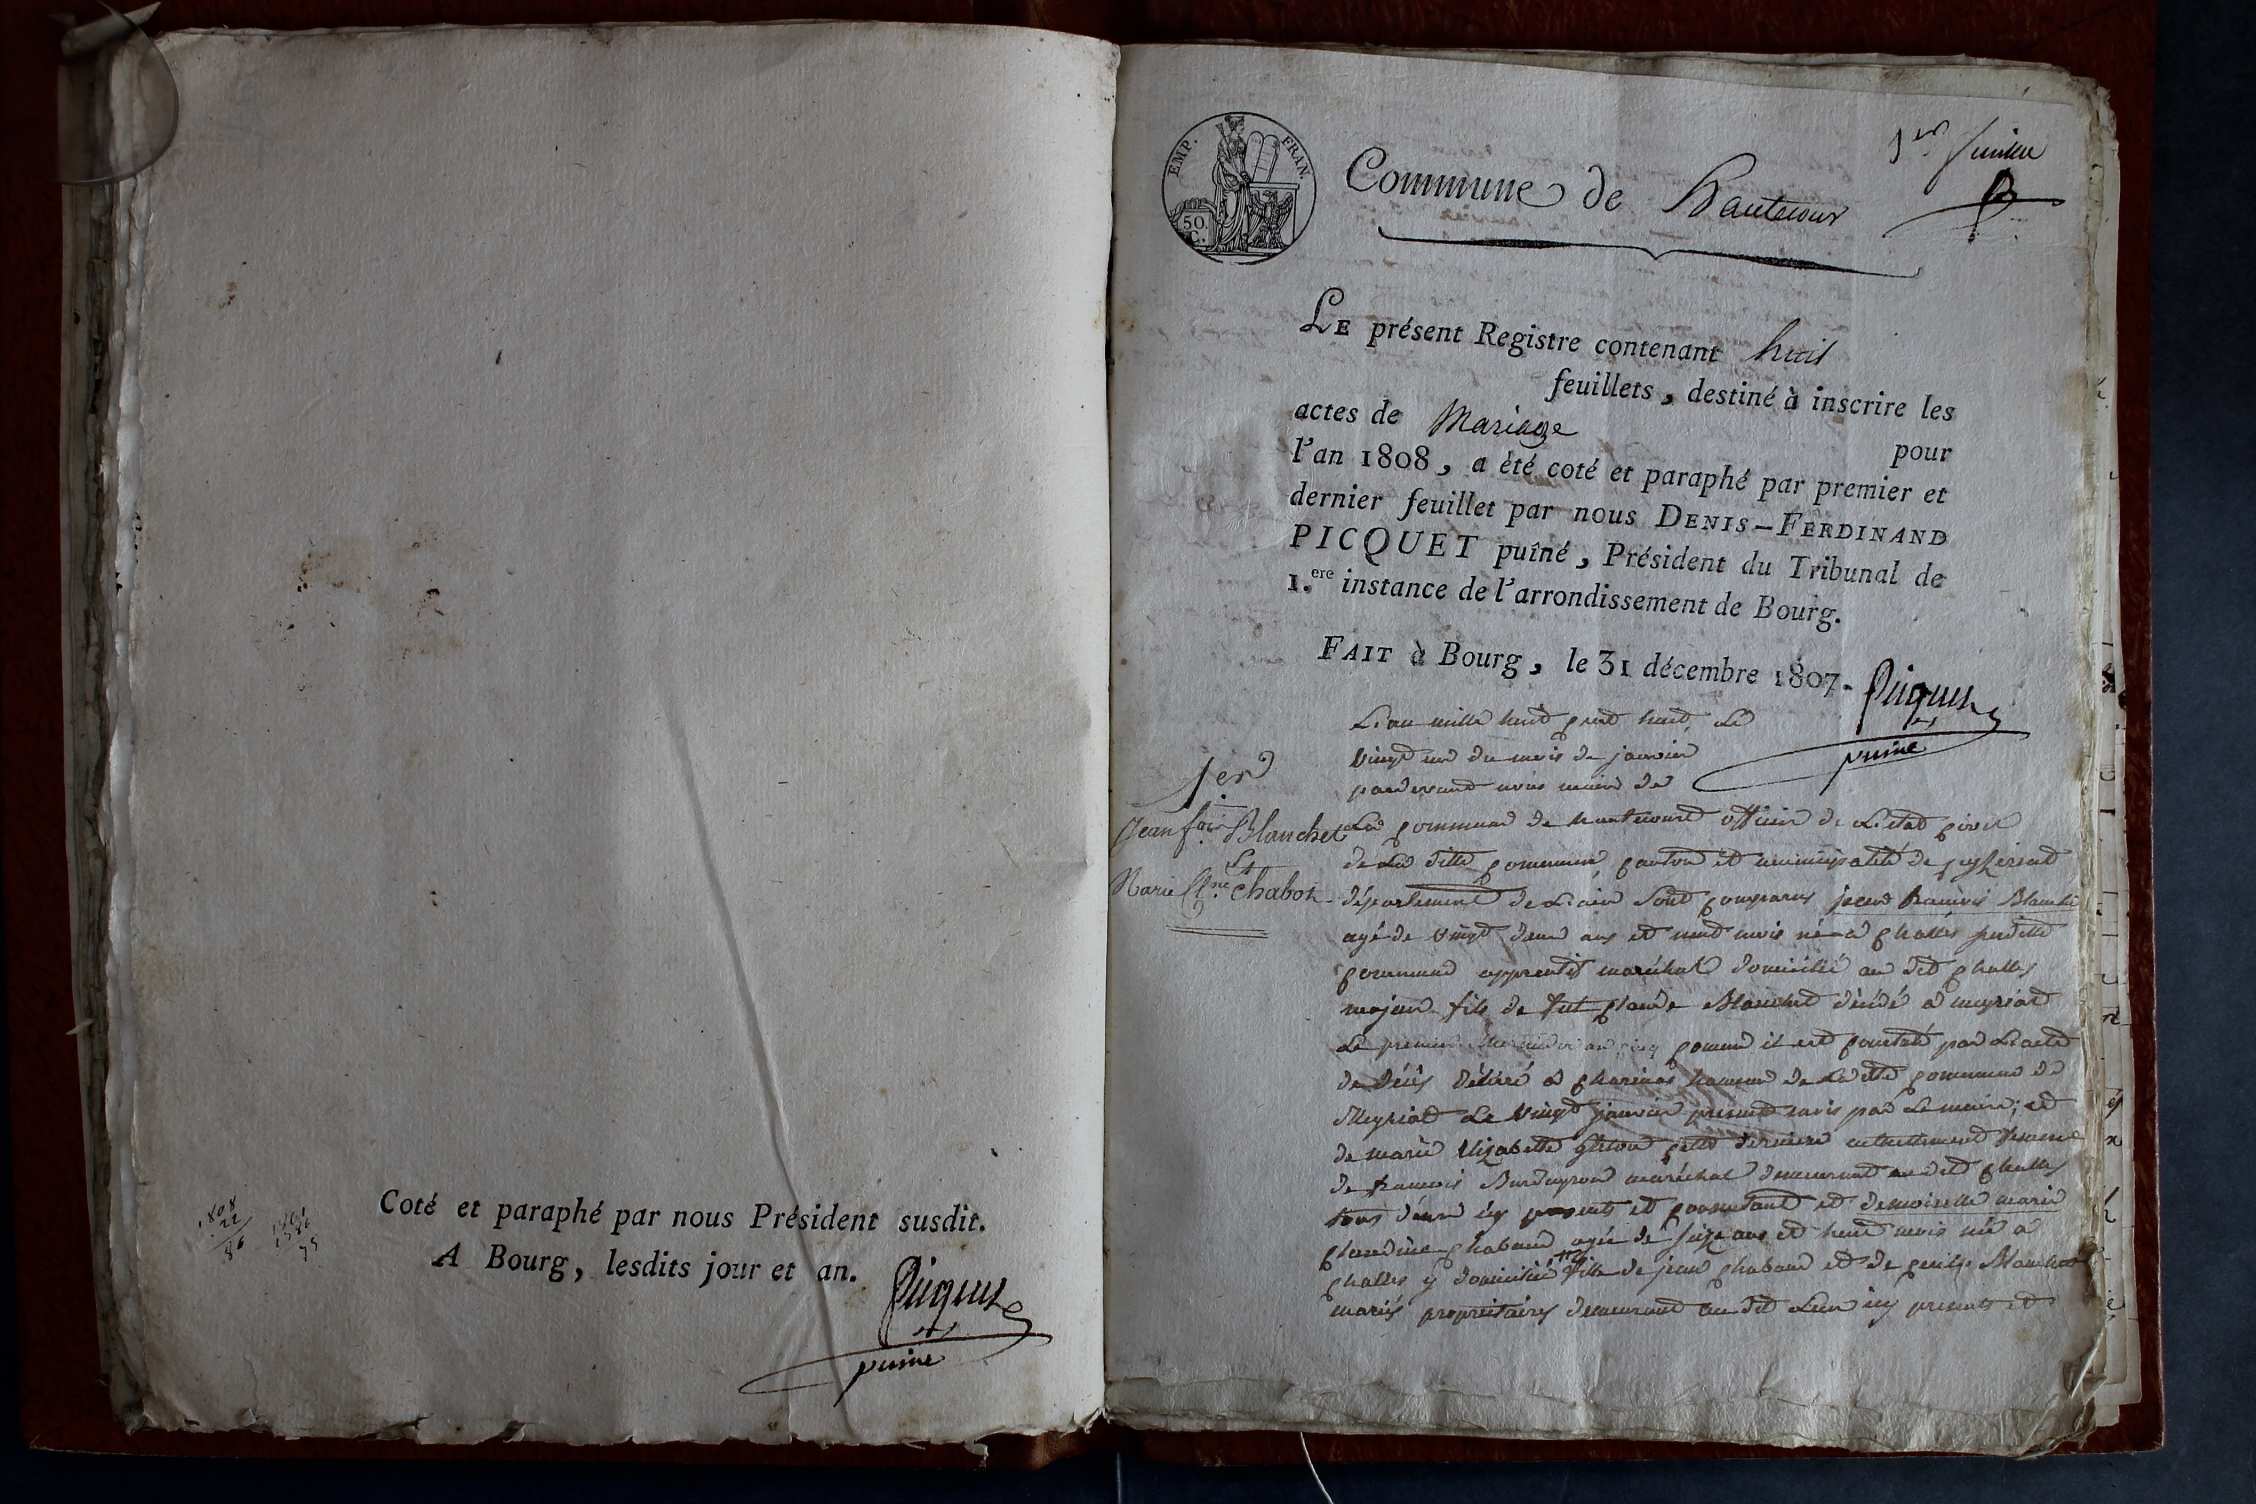 1808
22
86
75
Coté et paraphé par nous Président susdit.
A Bourg, lesdits jour et an.
Picquet
puine
EMP. FRAN.
50.
C.
1er feuillet
Commune de hautecour
LE présent Registre contenant huit
feuillets, destiné à inscrire les
actes de Mariage pour
l'an 1808, a été coté et paraphé par premier et
dernier feuillet par nous DENIS-FERDINAND
PICQUET puîné, Président du Tribunal de
1.ere instance de l'arrondissement de Bourg.
FAIT à Bourg, le 31 décembre 1807.
Picquet
puine
L'an mille huit cent huit le
vingt un du mois de janvier
pardevant nous maire de
1er
Jean f.ois Blanchet
Et
Marie Cl.ne Chabot
La commune de hautecourt officier de L'etat civil
de La ditte commune, canton et municipalité de
département de L'ain sont comparus jean francois Blanchet
agé de vingt deux ans et neuf mois né a challes susditte
commune apprentif maréchal domicilié au dit challes
majeur fils de fut claude Blanchet décédé a meyriat
Le premier an cinq comme il est constaté par L'acte
de décès délivré a de La ditte commune de
Meyriat Le vingt janvier présent mois par Le maire; et
de marie Elizabette cette derniere actuellement femme
de francois maréchal demeurant au dit challes
tous deux icy presents et consentant et demoiselle marie
claudine chabaud agée de seize ans et huit mois née a
challes y domicilié fille de jean chabaud et de Blanchet
mariés proprietaires demeurant au dit Lieu icy presents et